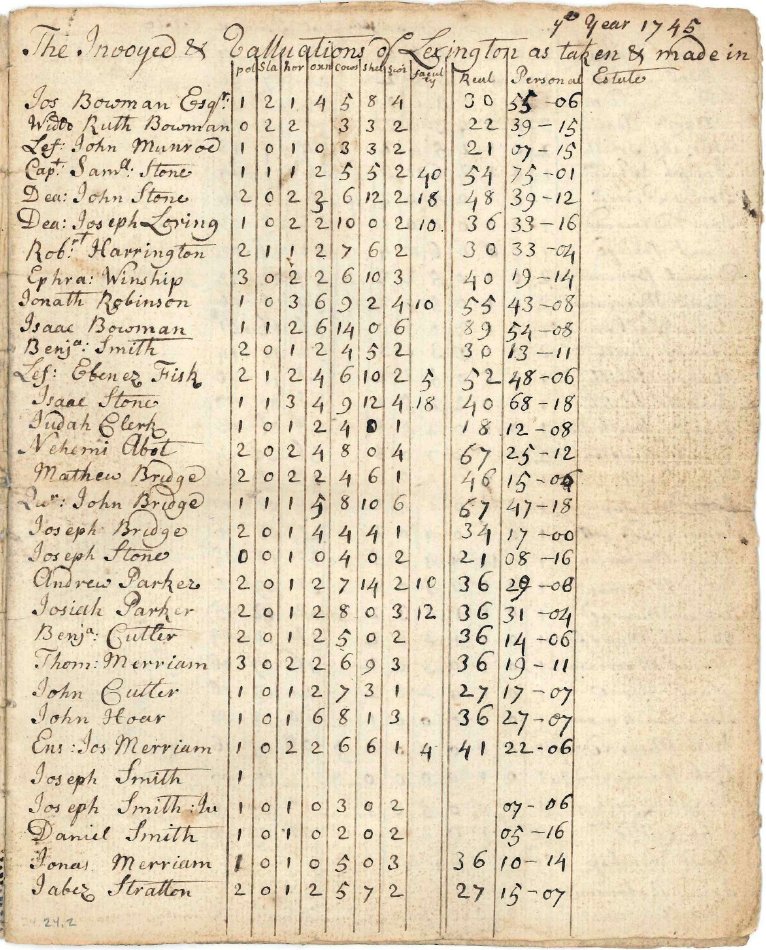 yᵉ Year 1745
The Invoyed & Valluations of Lexington as taken & made in
pol Sla hor oxn Cows She Swi faculty Real Personal Estate
Jos Bowman Esqʳ: 1 2 1 4 5 8 4 30 55-06
Widᵒ Ruth Bowman 0 2 2 3 3 2 22 39-15
Lef: John Munroe 1 0 1 0 3 3 2 21 07-15
Capᵗ. Samˡˡ: Stone 1 1 1 2 5 5 2 40 54 75-01
Dea: John Stone 2 0 2 2 6 12 2 18 48 39-12
Dea: Joseph Loring 1 0 2 2 10 0 2 10 36 33-16
Robᵗ: Harrington 2 1 1 2 7 6 2 30 33-04
Ephra: Winship 3 0 2 2 6 10 3 40 19-14
Jonath Robinson 1 0 3 6 9 2 4 10 55 43-08
Isaac Bowman 1 1 2 6 14 0 6 89 54-08
Benjᵃ: Smith 2 0 1 2 4 5 2 30 13-11
Lef: Ebenez Fisk 2 1 2 4 6 10 2 5 52 48-06
Isaac Stone 1 1 3 4 9 12 4 18 40 68-18
Judah Clerk 1 0 1 2 4 0 1 18 12-08
Nehemi Abot 2 0 2 4 8 0 4 67 25-12
Mathew Bridge 2 0 2 2 4 6 1 46 15-06
Quʳ: John Bridge 1 1 1 5 8 10 6 67 47-18
Joseph Bridge 2 0 1 4 4 4 1 34 17-00
Joseph Stone 0 0 1 0 4 0 2 21 08-16
Andrew Parker 2 0 1 2 7 14 2 10 36 29-08
Josiah Parker 2 0 1 2 8 0 3 12 36 31-04
Benjᵃ: Cutler 2 0 1 2 5 0 2 36 14-06
Thom: Merriam 3 0 2 2 6 9 3 36 19-11
John Cutler 1 0 1 2 7 3 1 27 17-07
John Hoar 1 0 1 6 8 1 3 36 27-07
Ens: Jos Merriam 1 0 2 2 6 6 1 4 41 22-06
Joseph Smith 1
Joseph Smith: Ju 1 0 1 0 3 0 2 07-06
Daniel Smith 1 0 1 0 2 0 2 05-16
Jonas Merriam 1 0 1 0 5 0 3 36 10-14
Jabez Stratton 2 0 1 2 5 7 2 27 15-07
24.2